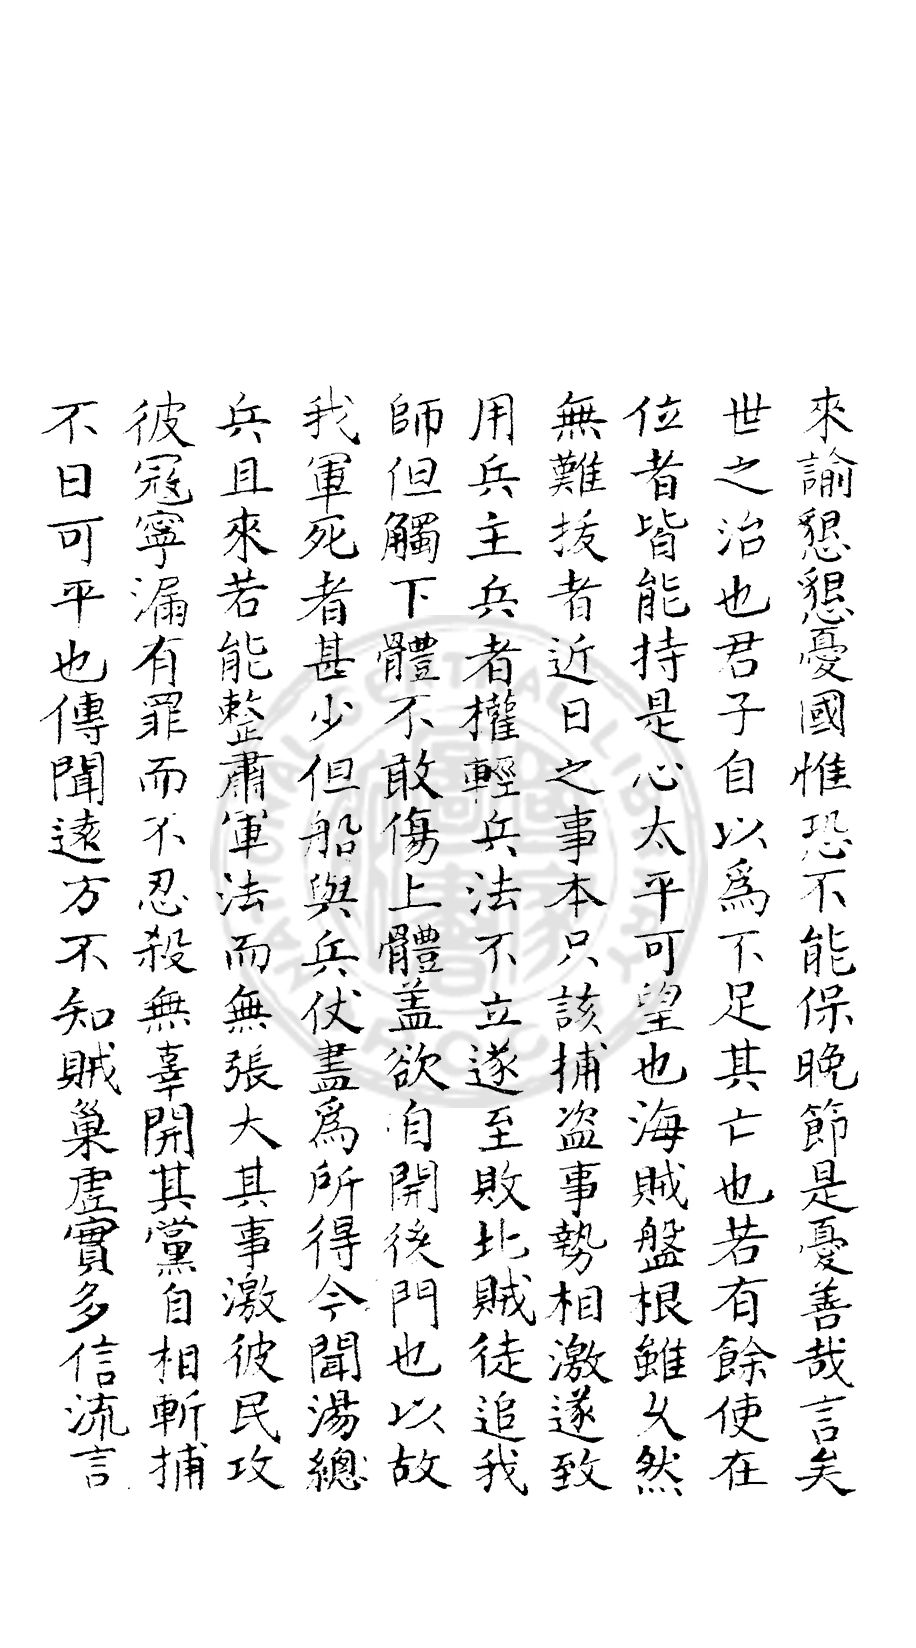 來諭懇懇憂國惟恐不能保晚節是憂善哉言矣
世之治也君子自以為不足其亡也若有餘使在
位者皆能持是心太平可望也海賊盤根雖乆然
無難拔者近日之事本只該捕盜事勢相激遂致
用兵主兵者權輕兵法不立遂至敗北賊徒追我
師但觸下體不敢傷上體盖欲自開後門也以故
我軍死者甚少但船與兵仗盡為所得今聞湯總
兵且來若能整肅軍法而無張大其事激彼民攻
彼冦寧漏有罪而不忍殺無辜開其黨自相斬捕
不日可平也傳聞遠方不知賊巢虛實多信流言
NATIONAL CENTRAL LIBRARY